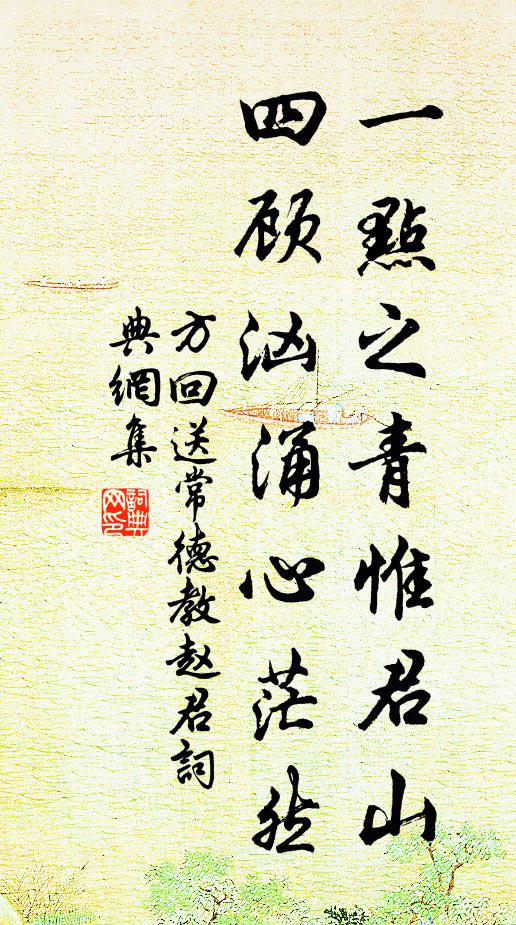 一點之青惟君山
四顾汹涌心茫然
方回送常德教赵君詞
典網集
詞典網印